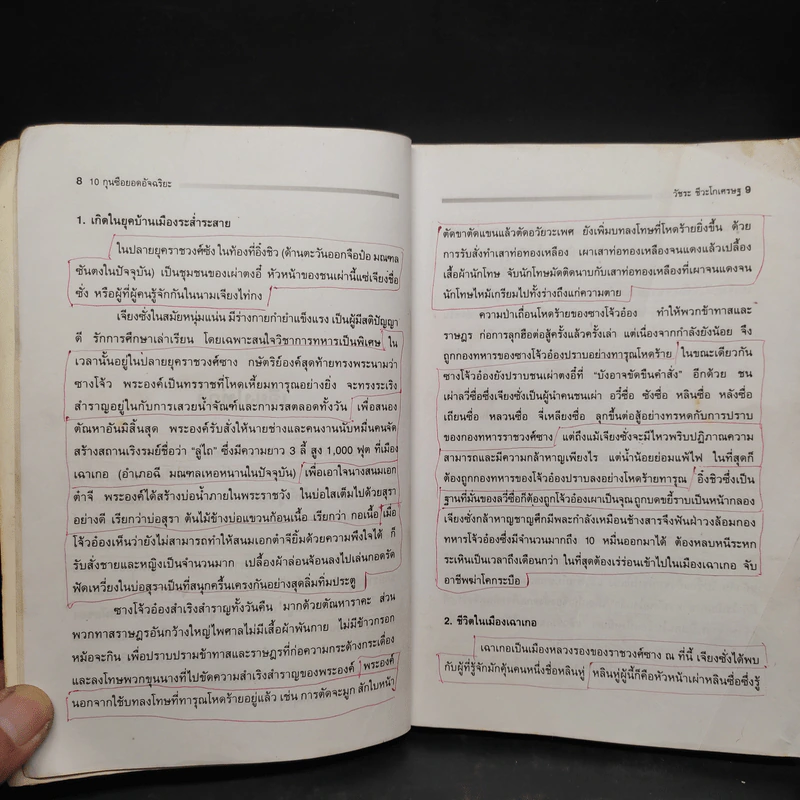 8 10 กุนซือยอดอัจฉริยะ
1. เกิดในยุคบ้านเมืองระส่ำระสาย
ในปลายยุคราชวงศ์ซัง ในท้องที่อิ๋งชิว (ด้านตะวันออกจือป๋อ มณฑล
ซันตงในปัจจุบัน) เป็นชุมชนของเผ่าตงอี๋ หัวหน้าของชนเผ่านี้แซ่เจียงชื่อ
ซั่ง หรือผู้ที่ผู้คนรู้จักกันในนามเจียงไท่กง
เจียงซั่งในสมัยหนุ่มแน่น มีร่างกายกำยำแข็งแรง เป็นผู้มีสติปัญญา
ดี รักการศึกษาเล่าเรียน โดยเฉพาะสนใจวิชาการทหารเป็นพิเศษ ใน
เวลานั้นอยู่ในปลายยุคราชวงศ์ซาง กษัตริย์องค์สุดท้ายทรงพระนามว่า
ซางโจ้ว พระองค์เป็นทรราชที่โหดเหี้ยมทารุณอย่างยิ่ง จะทรงระเริง
สำราญอยู่ในกับการเสวยน้ำจัณฑ์และกามารสตลอดทั้งวัน เพื่อสนอง
ตัณหาอันมิสิ้นสุด พระองค์รับสั่งให้นายช่างและคนงานนับหมื่นคนจัด
สร้างสถานเริงรมย์ที่ชื่อว่า "ลู่ไถ" ซึ่งมีความยาว 3 ลี้ สูง 1,000 ฟุต ที่เมือง
เฉาเกอ (อำเภอฉี มณฑลเหอหนานในปัจจุบัน) เพื่อเอาใจนางสนมเอก
ต๋าจี พระองค์ได้สร้างบ่อน้ำภายในพระราชวัง ในบ่อใส่เต็มไปด้วยสุรา
อย่างดี เรียกว่าบ่อสุรา ต้นไม้ข้างบ่อแขวนก้อนเนื้อ เรียกว่า กอเนื้อ เมื่อ
โจ้วอ๋องเห็นว่ายังไม่สามารถทำให้สนมเอกต๋าจียิ้มด้วยความพึงใจได้ ก็
รับสั่งชายและหญิงเป็นจำนวนมาก เปลื้องผ้าล่อนจ้อนลงไปเล่นกอดรัด
ฟัดเหวี่ยงในบ่อสุราเป็นที่สนุกครื้นเครงกันอย่างสุดลิ่มทิ่มประตู
ซางโจ้วอ๋องสำเริงสำราญทั้งวันคืน มากด้วยตัณหาราคะ ส่วน
พวกทาสราษฎรอันกว้างใหญ่ไพศาลไม่มีเสื้อผ้าพันกาย ไม่มีข้าวกรอก
หม้อจะกิน เพื่อปราบปรามข้าทาสและราษฎรที่ก่อความกระด้างกระเดื่อง
และลงโทษพวกขุนนางที่ไปขัดความสำเริงสำราญของพระองค์ พระองค์
นอกจากใช้บทลงโทษที่ทารุณโหดร้ายอยู่แล้ว เช่น การตัดจะมูก สักใบหน้า
วัชระ ชีวะโกเศรษฐ 9
ตัดขาตัดแขนแล้วตัดอวัยวะเพศ ยังเพิ่มบทลงโทษที่โหดร้ายยิ่งขึ้น ด้วย
การรับสั่งทำเสาท่อทองเหลือง เผาเสาท่อทองเหลืองจนแดงแล้วเปลื้อง
เสื้อผ้านักโทษ จับนักโทษมัดติดนาบกับเสาท่อทองเหลืองที่เผาจนแดงจน
นักโทษไหม้เกรียมไปทั้งร่างถึงแก่ความตาย
ความป่าเถื่อนโหดร้ายของซางโจ้วอ๋อง ทำให้พวกข้าทาสและ
ราษฎร ก่อการลุกฮือต่อสู้ครั้งแล้วครั้งเล่า แต่เนื่องจากกำลังยังน้อย จึง
ถูกกองทหารของซางโจ้วอ๋องปราบอย่างทารุณโหดร้าย ในขณะเดียวกัน
ซางโจ้วอ๋องยังปราบชนเผ่าตงอี๋ที่ "บังอาจขัดขืนคำสั่ง" อีกด้วย ชน
เผ่าลวี่ซื่อซึ่งเจียงซั่งเป็นผู้นำคนชนเผ่า อวี๋ซื่อ ซังซื่อ หลินซื่อ หลังซื่อ
เถียนซื่อ หลวนซื่อ จี่เหลียงซื่อ ลุกขึ้นต่อสู้อย่างทรหดกับการปราบ
ของกองทหารราชวงศ์ซาง แต่ถึงแม้เจียงซั่งจะมีไหวพริบปฏิภาณความ
สามารถและมีความกล้าหาญเพียงไร แต่น้ำน้อยย่อมแพ้ไฟ ในที่สุดก็
ต้องถูกกองทหารของโจ้วอ๋องปราบลงอย่างโหดร้ายทารุณ อิ๋งชิวซึ่งเป็น
ฐานที่มั่นของลวี่ซื่อก็ต้องถูกโจ้วอ๋องเผาเป็นจุณถูกบดขยี้ราบเป็นหน้ากลอง
เจียงซั่งกล้าหาญชาญศึกมีพละกำลังเหมือนช้างสารจึงฟันฝ่าวงล้อมกอง
ทหารโจ้วอ๋องซึ่งมีจำนวนมากถึง 10 หมื่นออกมาได้ ต้องหลบหนีระหก
ระเหินเป็นเวลาถึงเดือนกว่า ในที่สุดต้องเร่ร่อนเข้าไปในเมืองเฉาเกอ จับ
อาชีพฆ่าโคกระบือ
2. ชีวิตในเมืองเฉาเกอ
เฉาเกอเป็นเมืองหลวงรองของราชวงศ์ซาง ณ ที่นี้ เจียงซั่งได้พบ
กับผู้ที่รู้จักมักคุ้นคนหนึ่งชื่อหลินหู่ หลินหู่ผู้นี้ก็คือหัวหน้าเผ่าหลินซื่อซึ่งรู้